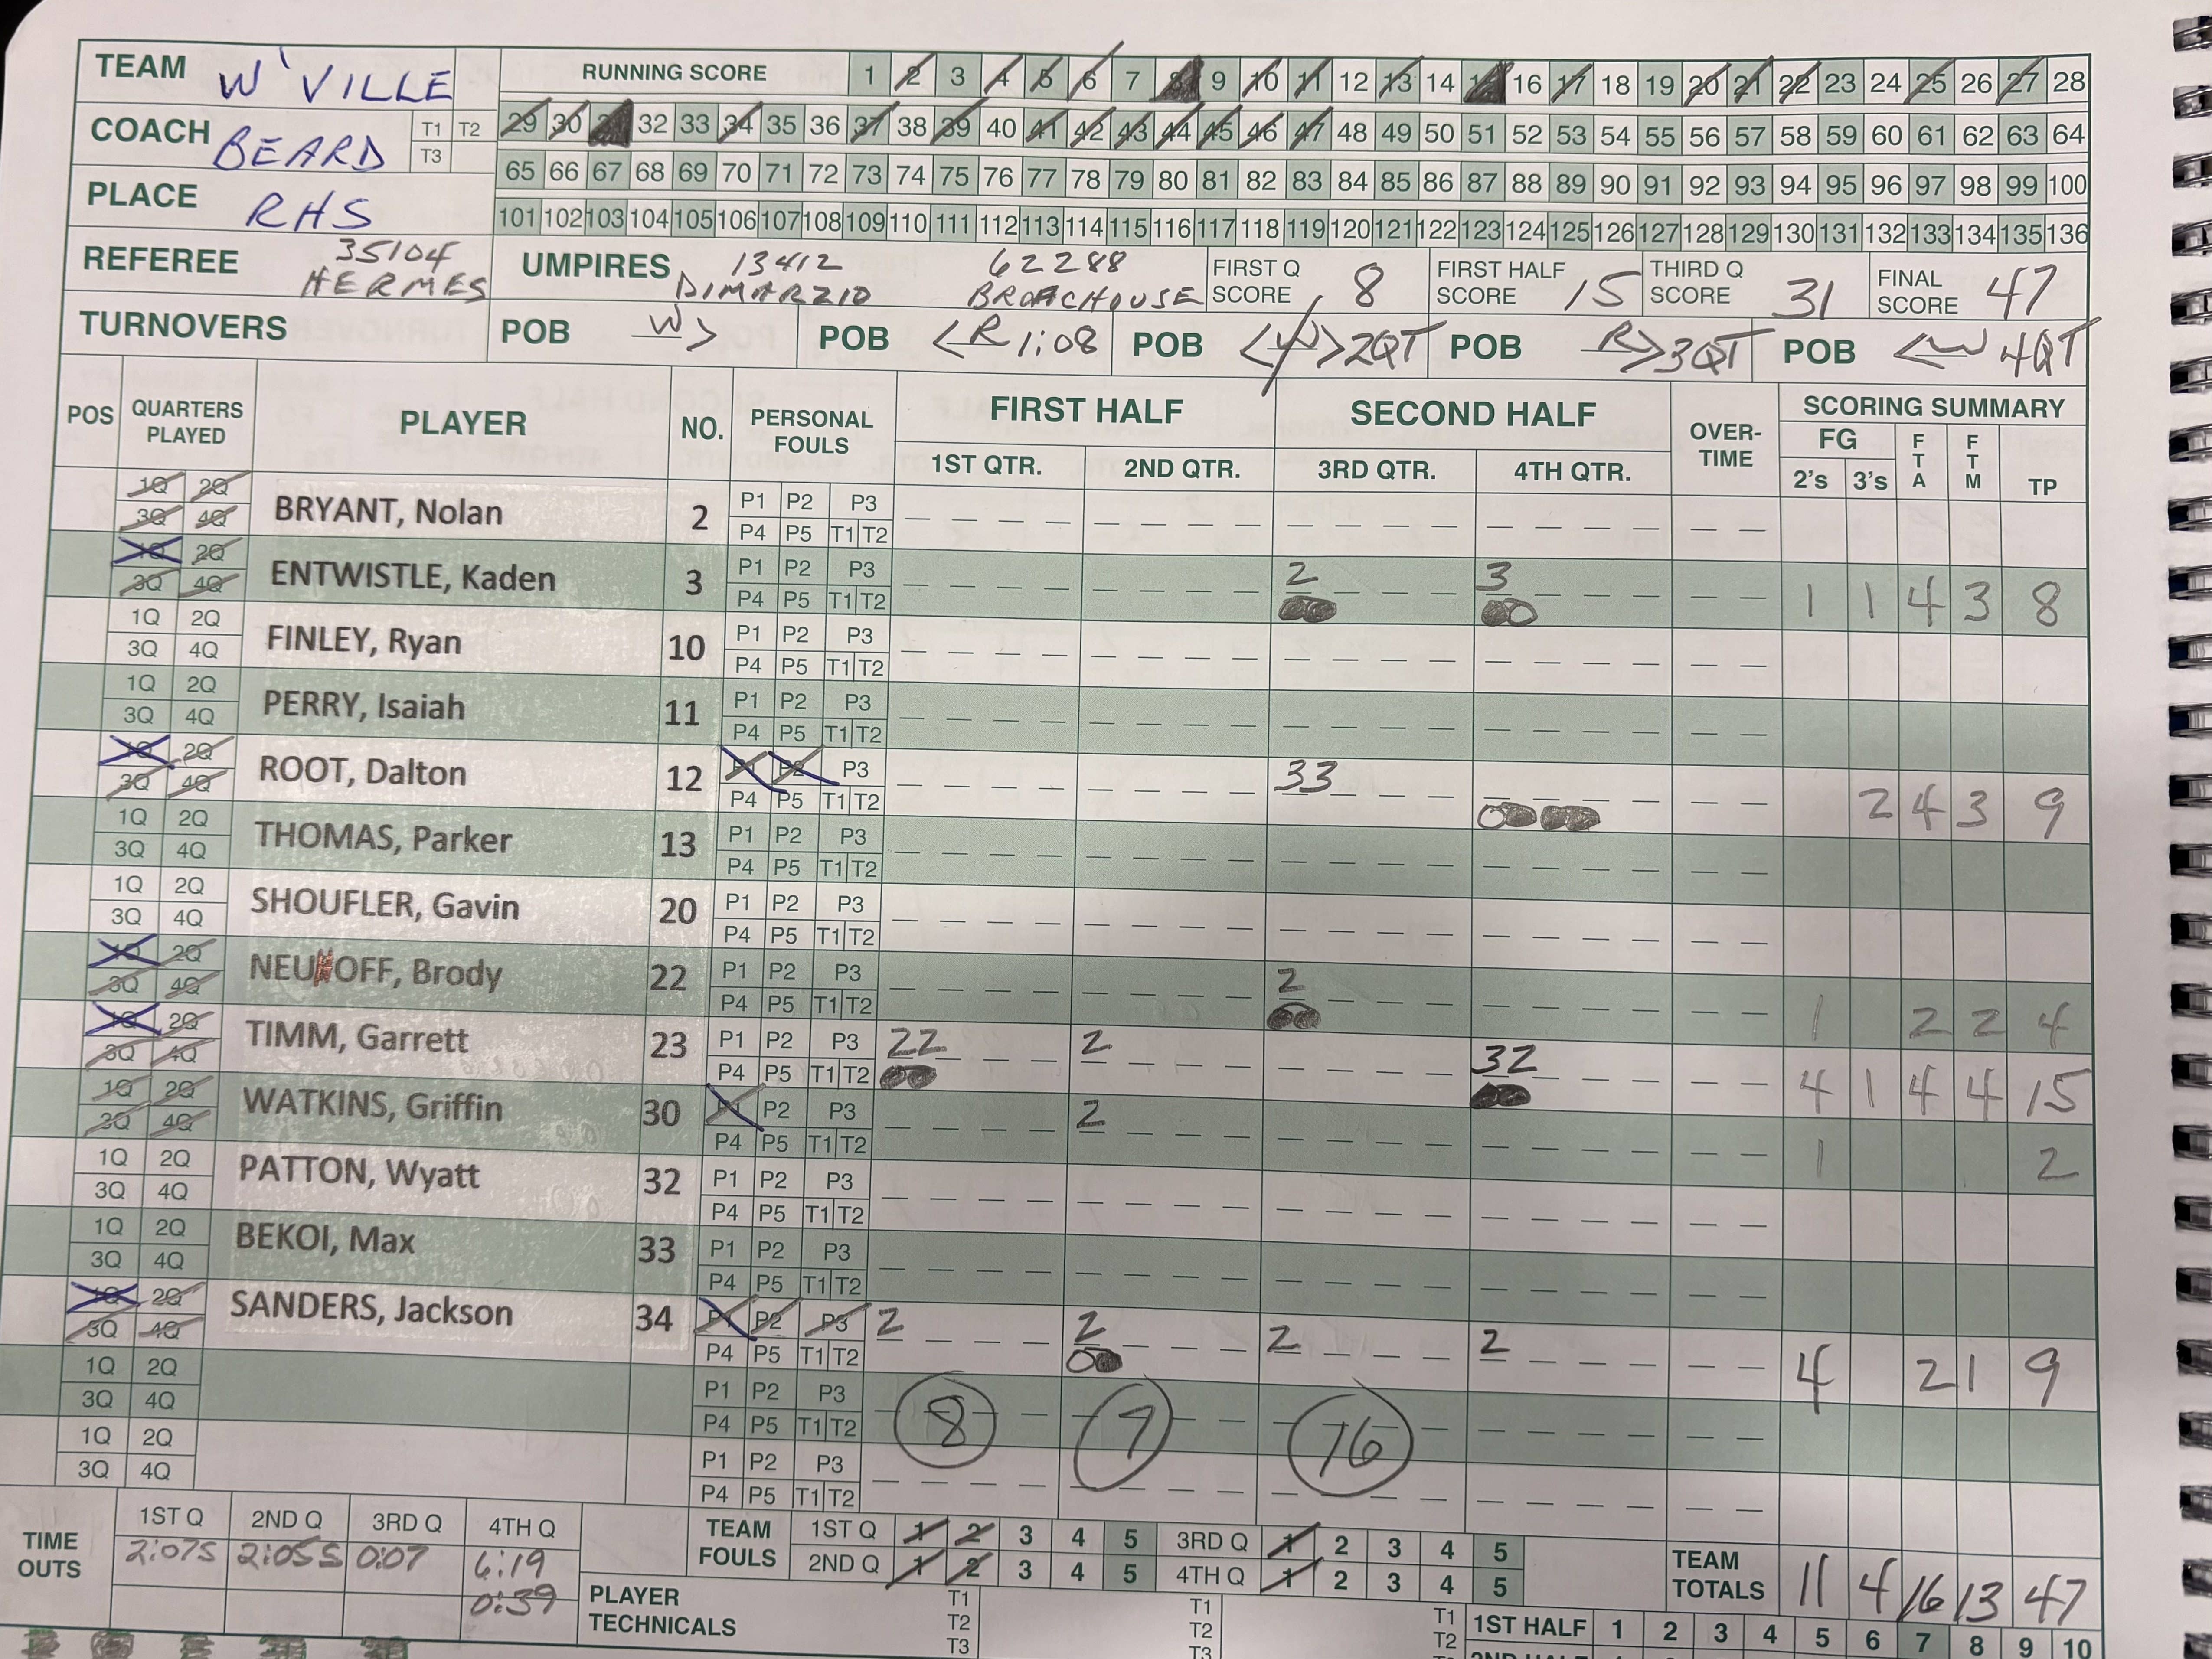 TEAM W'VILLE
RUNNING SCORE 1 2 3 4 5 6 7 8 9 10 11 12 13 14 15 16 17 18 19 20 21 22 23 24 25 26 27 28
COACH BEARD T1 T2 T3
29 30 31 32 33 34 35 36 37 38 39 40 41 42 43 44 45 46 47 48 49 50 51 52 53 54 55 56 57 58 59 60 61 62 63 64
65 66 67 68 69 70 71 72 73 74 75 76 77 78 79 80 81 82 83 84 85 86 87 88 89 90 91 92 93 94 95 96 97 98 99 100
PLACE RHS
101 102 103 104 105 106 107 108 109 110 111 112 113 114 115 116 117 118 119 120 121 122 123 124 125 126 127 128 129 130 131 132 133 134 135 136
REFEREE 35104 HERMES UMPIRES 13412 DIMARZIO 62288 FIRST Q SCORE 8 FIRST HALF SCORE 15 THIRD Q SCORE 31 FINAL SCORE 47
TURNOVERS POB W> POB <R 1:08 POB <W> 2QT POB R> 3QT POB <W 4QT
POS QUARTERS PLAYED PLAYER NO. PERSONAL FOULS FIRST HALF SECOND HALF OVER-TIME SCORING SUMMARY
1ST QTR. 2ND QTR. 3RD QTR. 4TH QTR. FG 2's 3's FTA FTM TP
1Q 2Q BRYANT, Nolan 2 P1 P2 P3
3Q 4Q P4 P5 T1 T2
1Q 2Q ENTWISTLE, Kaden 3 P1 P2 P3 2 3 1 1 4 3 8
3Q 4Q P4 P5 T1 T2
1Q 2Q FINLEY, Ryan 10 P1 P2 P3
3Q 4Q P4 P5 T1 T2
1Q 2Q PERRY, Isaiah 11 P1 P2 P3
3Q 4Q P4 P5 T1 T2
1Q 2Q ROOT, Dalton 12 P1 P2 P3 33 2 4 3 9
3Q 4Q P4 P5 T1 T2
1Q 2Q THOMAS, Parker 13 P1 P2 P3
3Q 4Q P4 P5 T1 T2
1Q 2Q SHOUFLER, Gavin 20 P1 P2 P3
3Q 4Q P4 P5 T1 T2
1Q 2Q NEUHOFF, Brody 22 P1 P2 P3 2 1 2 2 4
3Q 4Q P4 P5 T1 T2
1Q 2Q TIMM, Garrett 23 P1 P2 P3 22 2 32 4 1 4 4 15
3Q 4Q P4 P5 T1 T2
1Q 2Q WATKINS, Griffin 30 P1 P2 P3 2 1 2
3Q 4Q P4 P5 T1 T2
1Q 2Q PATTON, Wyatt 32 P1 P2 P3
3Q 4Q P4 P5 T1 T2
1Q 2Q BEKOI, Max 33 P1 P2 P3
3Q 4Q P4 P5 T1 T2
1Q 2Q SANDERS, Jackson 34 P1 P2 P3 2 2 2 2 4 2 1 9
3Q 4Q P4 P5 T1 T2
1Q 2Q P1 P2 P3 8 7 16
3Q 4Q P4 P5 T1 T2
1Q 2Q P1 P2 P3
3Q 4Q P4 P5 T1 T2
TIME OUTS 1ST Q 2ND Q 3RD Q 4TH Q TEAM FOULS 1ST Q 1 2 3 4 5 3RD Q 1 2 3 4 5
2:07S 2:05S 0:07 6:19 2ND Q 1 2 3 4 5 4TH Q 1 2 3 4 5 TEAM TOTALS 11 4 16 13 47
0:39 PLAYER TECHNICALS T1 T2 T3 T1 T2 T3 T1 T2 1ST HALF 1 2 3 4 5 6 7 8 9 10
2ND HALF